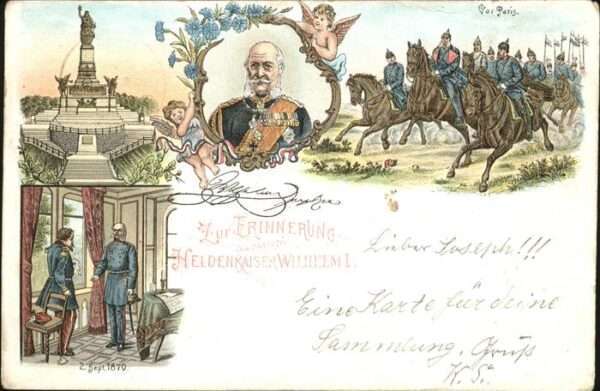 Vor Paris.
Zur Erinnerung
Heldenkaiser Wilhelm I.
2. Sept. 1870
Lieber Joseph!!!
Eine Karte für deine
Sammlung. Gruß